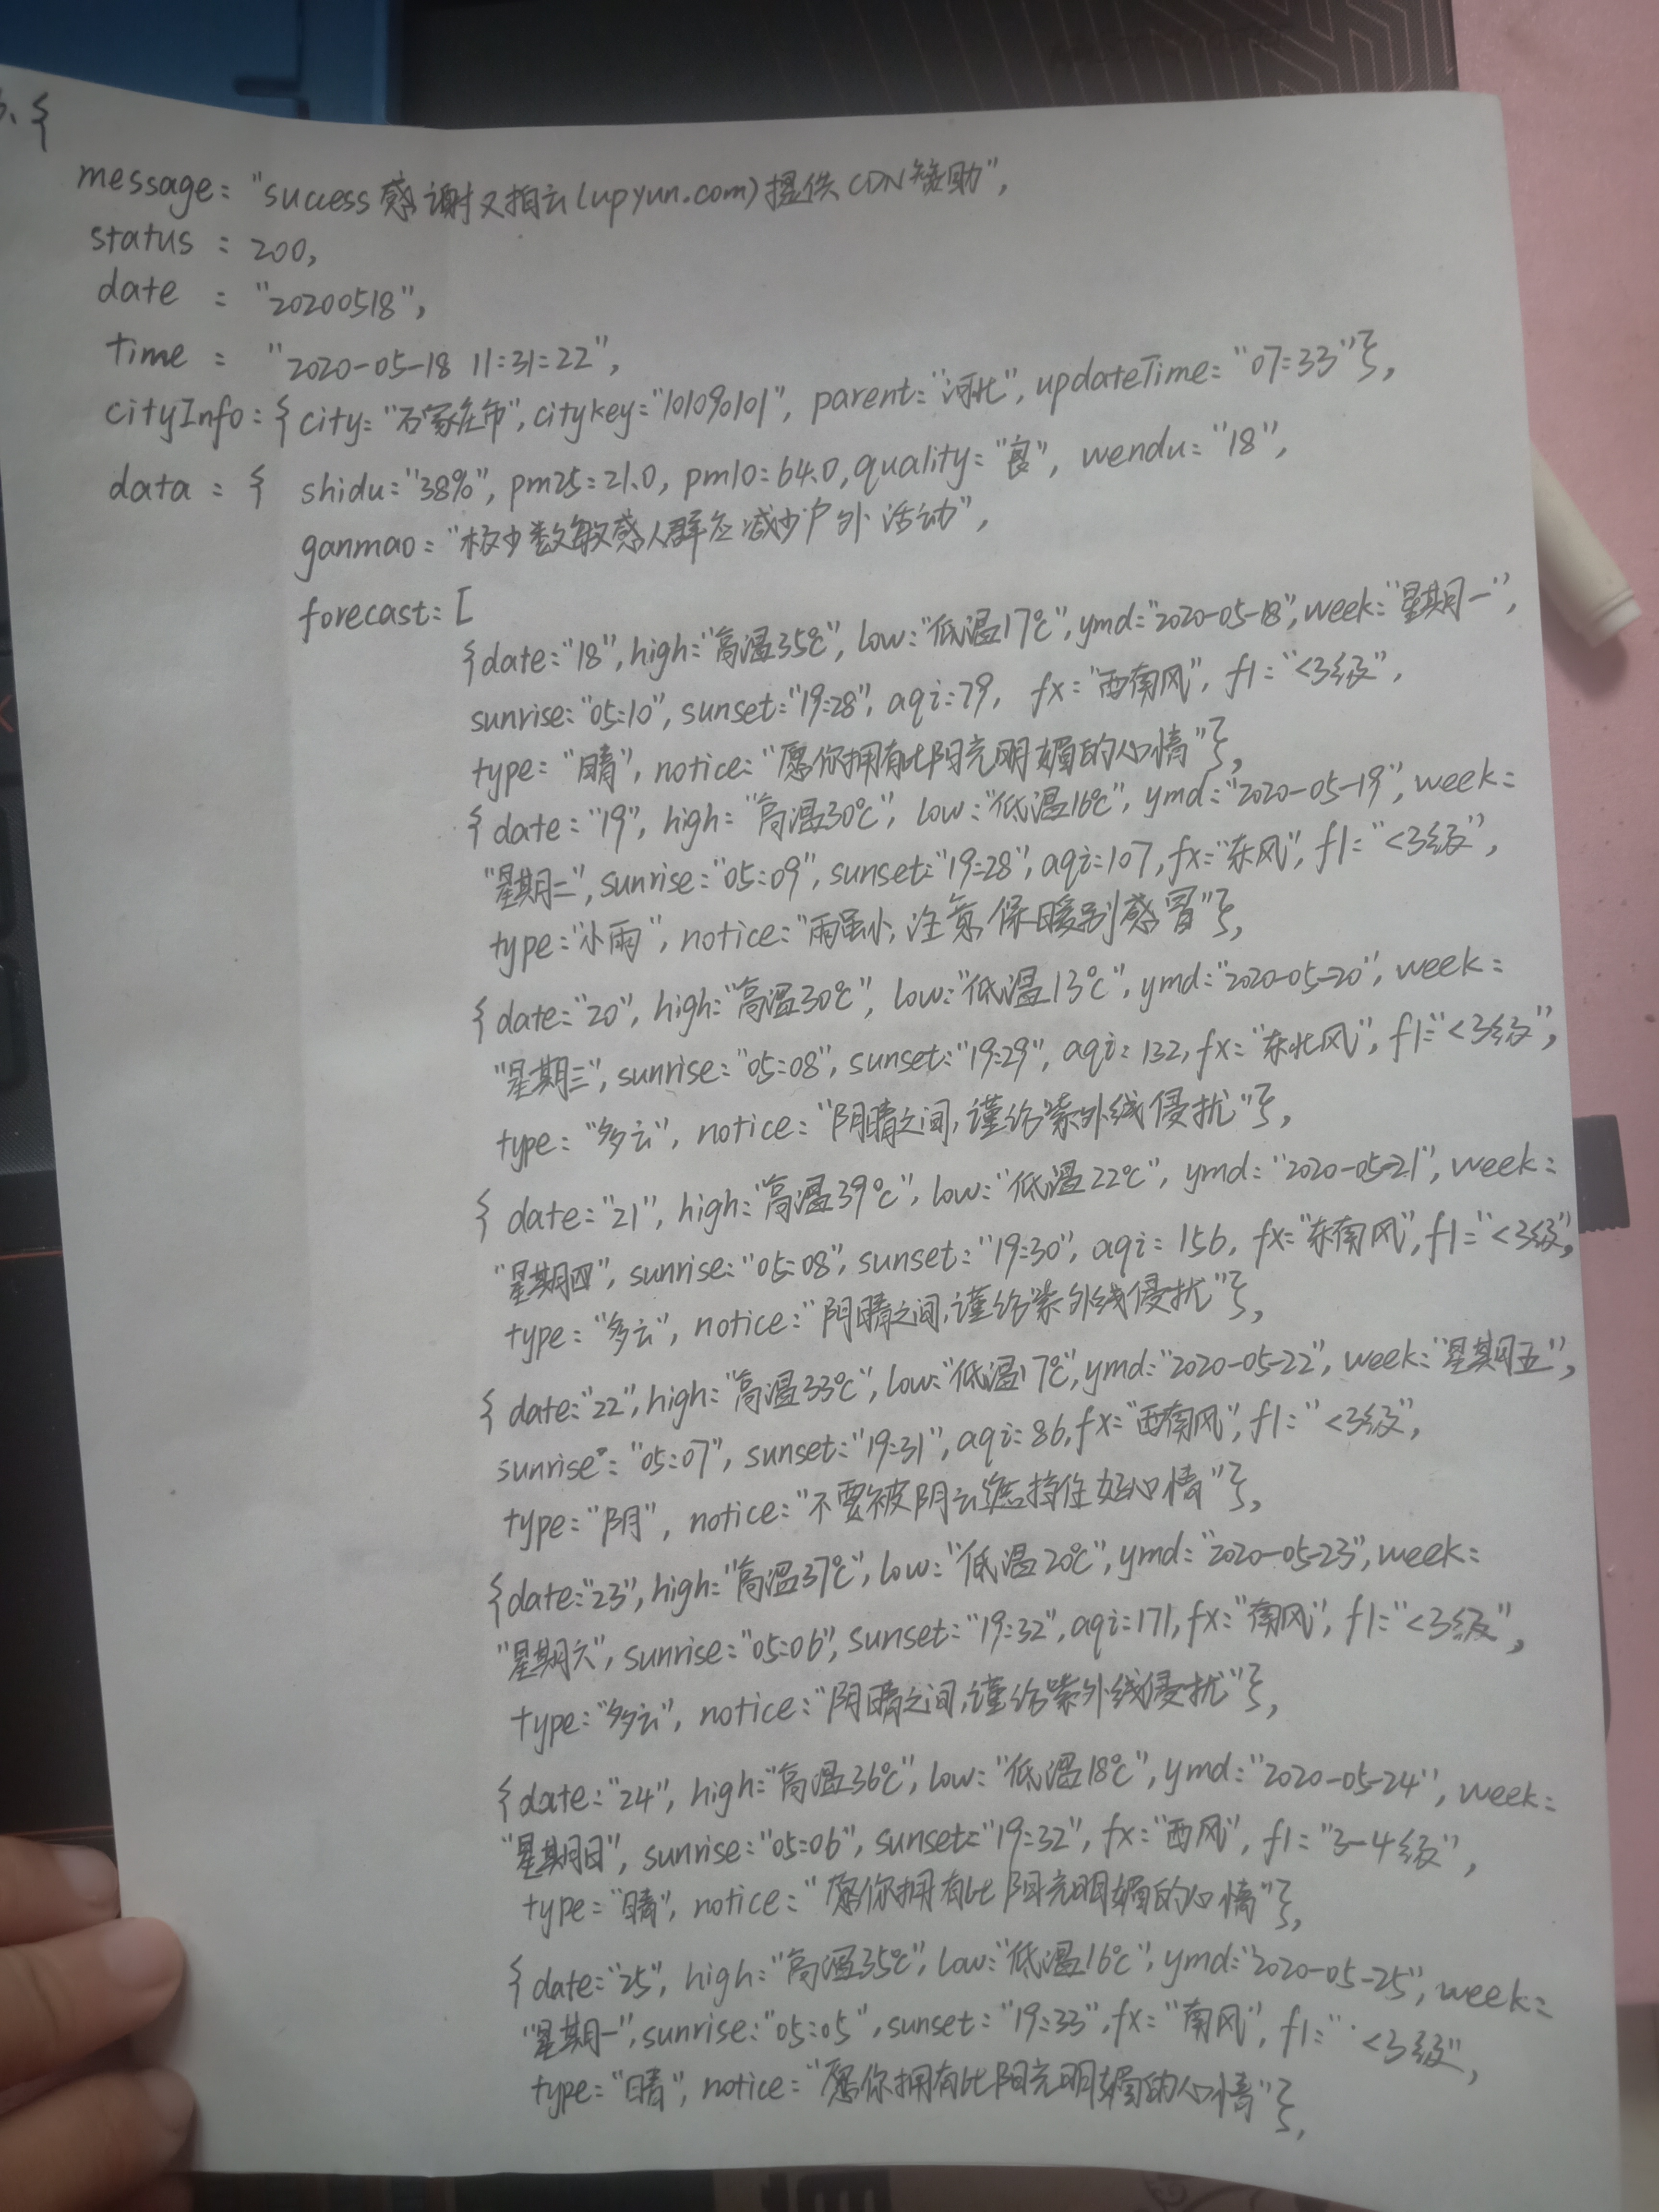 3. {
message: "success感谢又拍云(upyun.com)提供CDN赞助",
status : 200,
date : "20200518",
time : "2020-05-18 11:31:22",
cityInfo: { city: "石家庄市", citykey="101090101", parent: "河北", updateTime: "07:33"},
data : { shidu: "38%", pm25: 21.0, pm10: 64.0, quality: "良", wendu: "18",
ganmao: "极少数敏感人群应减少户外活动",
forecast: [
{date: "18", high: "高温35℃", low: "低温17℃", ymd: "2020-05-18", week: "星期一",
sunrise: "05:10", sunset: "19:28", aqi: 79, fx: "西南风", fl: "<3级",
type: "晴", notice: "愿你拥有比阳光明媚的心情"},
{date: "19", high: "高温30℃", low: "低温16℃", ymd: "2020-05-19", week:
"星期二", sunrise: "05:09", sunset: "19:28", aqi: 107, fx: "东风", fl: "<3级",
type: "小雨", notice: "雨虽小,注意保暖别感冒"},
{date: "20", high: "高温30℃", low: "低温13℃", ymd: "2020-05-20", week:
"星期三", sunrise: "05:08", sunset: "19:29", aqi: 132, fx: "东北风", fl: "<3级",
type: "多云", notice: "阴晴之间,谨防紫外线侵扰"},
{ date: "21", high: "高温39℃", low: "低温22℃", ymd: "2020-05-21", week:
"星期四", sunrise: "05:08", sunset: "19:30", aqi: 156, fx: "东南风", fl: "<3级",
type: "多云", notice: "阴晴之间,谨防紫外线侵扰"},
{ date: "22", high: "高温33℃", low: "低温17℃", ymd: "2020-05-22", week: "星期五",
sunrise: "05:07", sunset: "19:31", aqi: 86, fx: "西南风", fl: "<3级",
type: "阴", notice: "不要被阴云遮挡住好心情"},
{date: "23", high: "高温37℃", low: "低温20℃", ymd: "2020-05-23", week:
"星期六", sunrise: "05:06", sunset: "19:32", aqi: 171, fx: "南风", fl: "<3级",
type: "多云", notice: "阴晴之间,谨防紫外线侵扰"},
{date: "24", high: "高温36℃", low: "低温18℃", ymd: "2020-05-24", week:
"星期日", sunrise: "05:06", sunset: "19:32", fx: "西风", fl: "3-4级",
type: "晴", notice: "愿你拥有比阳光明媚的心情"},
{date: "25", high: "高温35℃", low: "低温16℃", ymd: "2020-05-25", week:
"星期一", sunrise: "05:05", sunset: "19:33", fx: "南风", fl: "<3级",
type: "晴", notice: "愿你拥有比阳光明媚的心情"},